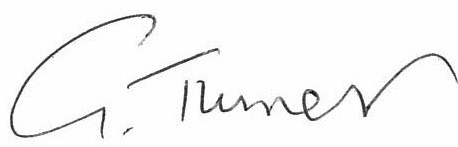 G. Turner